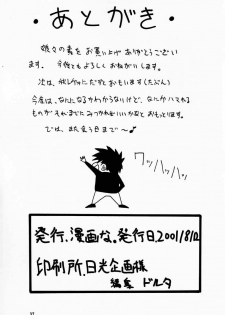 ・あとがき・
娘々の素をお買い上げありがとうござい
ます。今後もよろしくおねがいします。
次は、秋レヴォだと思おもいます(たぶん)
今度は、なんになるかわからないけど、なにかハマれる
ものがそれまでにみつかればいいかなとおもっとります。
では、また会う日まで〜
ワッハッハッ
発行、漫画な。発行日、2001/8/12
印刷所、日光企画様
編集 ドルタ